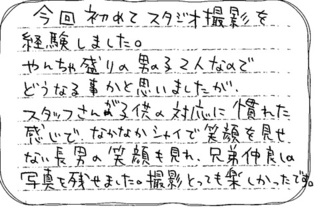 今回初めてスタジオ撮影を
経験しました。
やんちゃ盛りの男の子2人なので
どうなる事かと思いましたが、
スタッフさんが子供の対応に慣れた
感じで、なかなかシャイで笑顔を見せ
ない長男の笑顔も見れ、兄弟仲良しな
写真を残せました。撮影とっても楽しかったです。